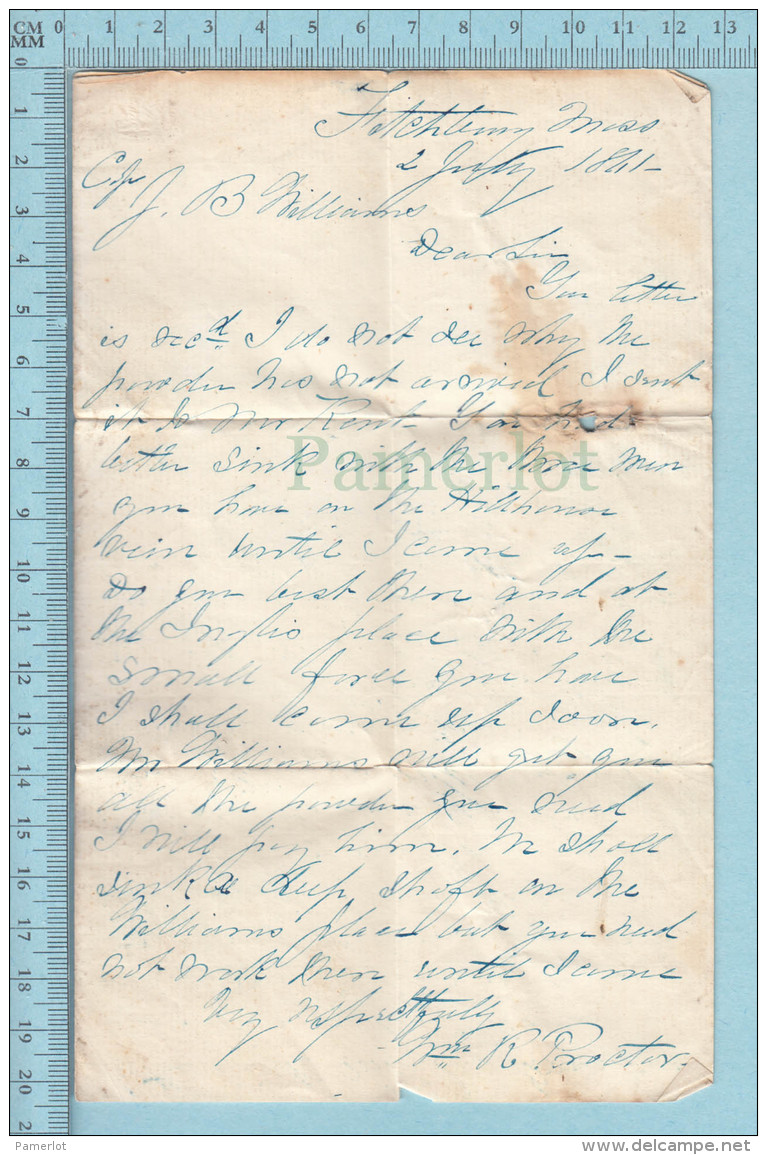 CM 0 1 2 3 4 5 6 7 8 9 10 11 12 13
MM
0 1 2 3 4 5 6 7 8 9 10 11 12 13 14 15 16 17 18 19 20 2
Fitchburg Mass
2 July 1861-
J. B Williams
Dear Sir
Your letter
is recd. I do not see why the
powder has not arrived I sent
it to Mr Kent. You had
better sink with the three men
you have on the Hillhouse
vein until I come up-
Do your best there and at
the Inglis place with the
small force you have
I shall come up soon.
Mr Williams will get you
all the powder you need
I will pay him. We shall
sink a deep shaft on the
Williams place but you need
not work there until I come
Very respectfully
Wm R. Proctor.
Pamerlot
Pamerlot
www.delcampe.net